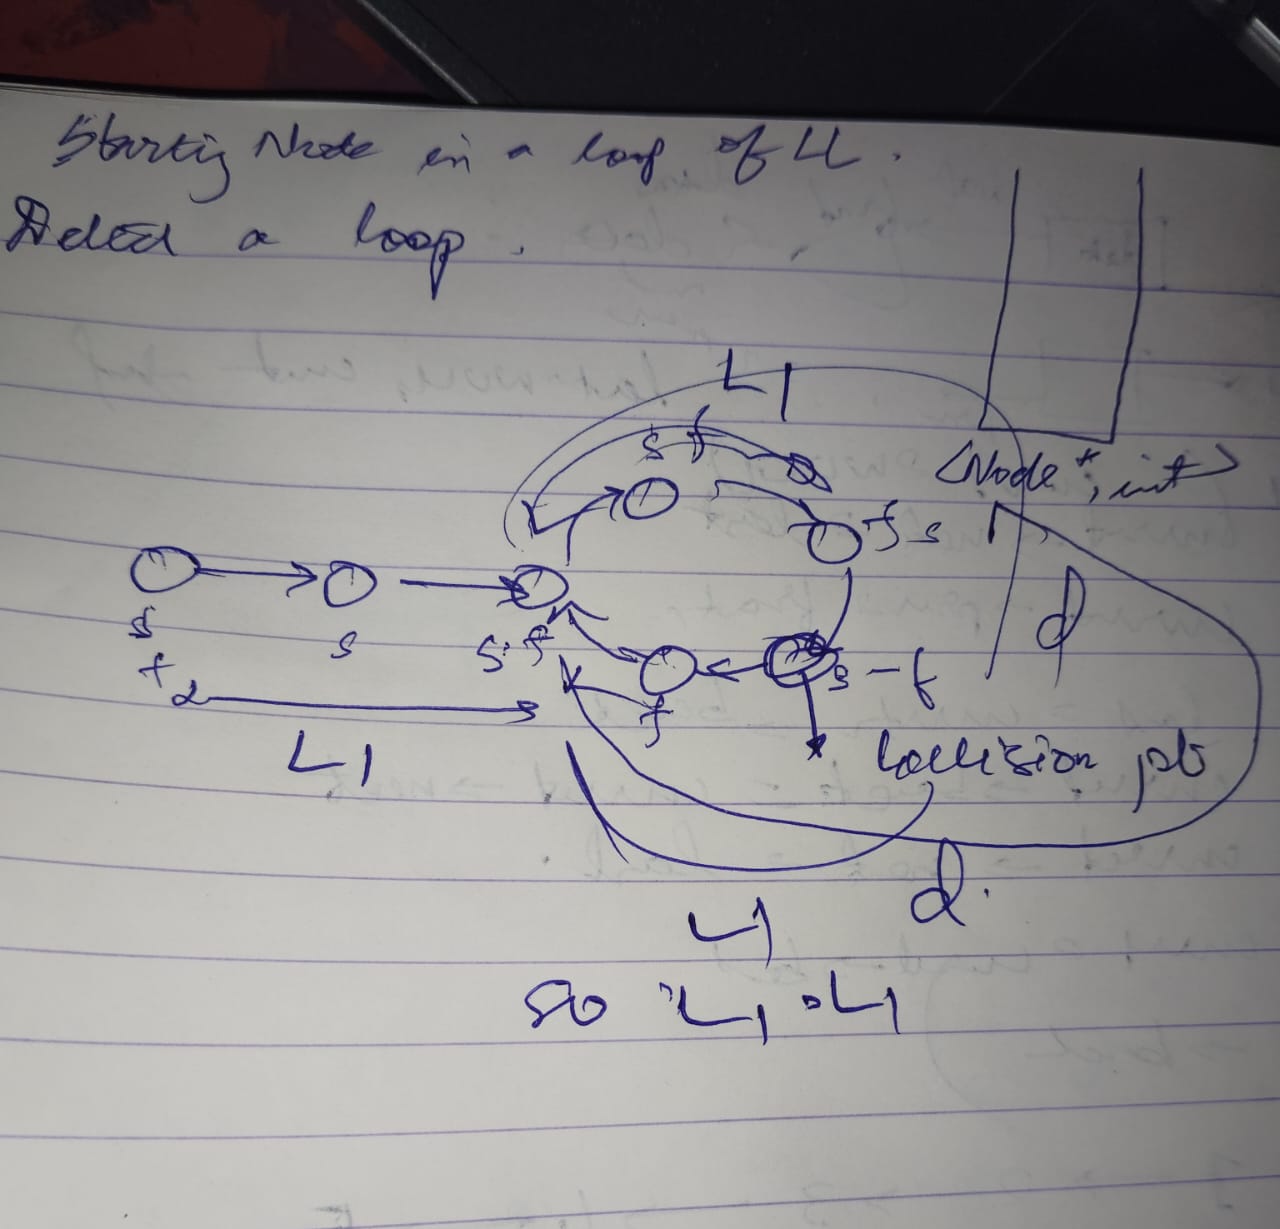 Starting Node in a loop of LL.
Detect a loop.
L1
s f
<Node*, int>
f s
d
s
f
s
s f
s - f
f
L1
Collision pt
d.
L1
so L1 = L1